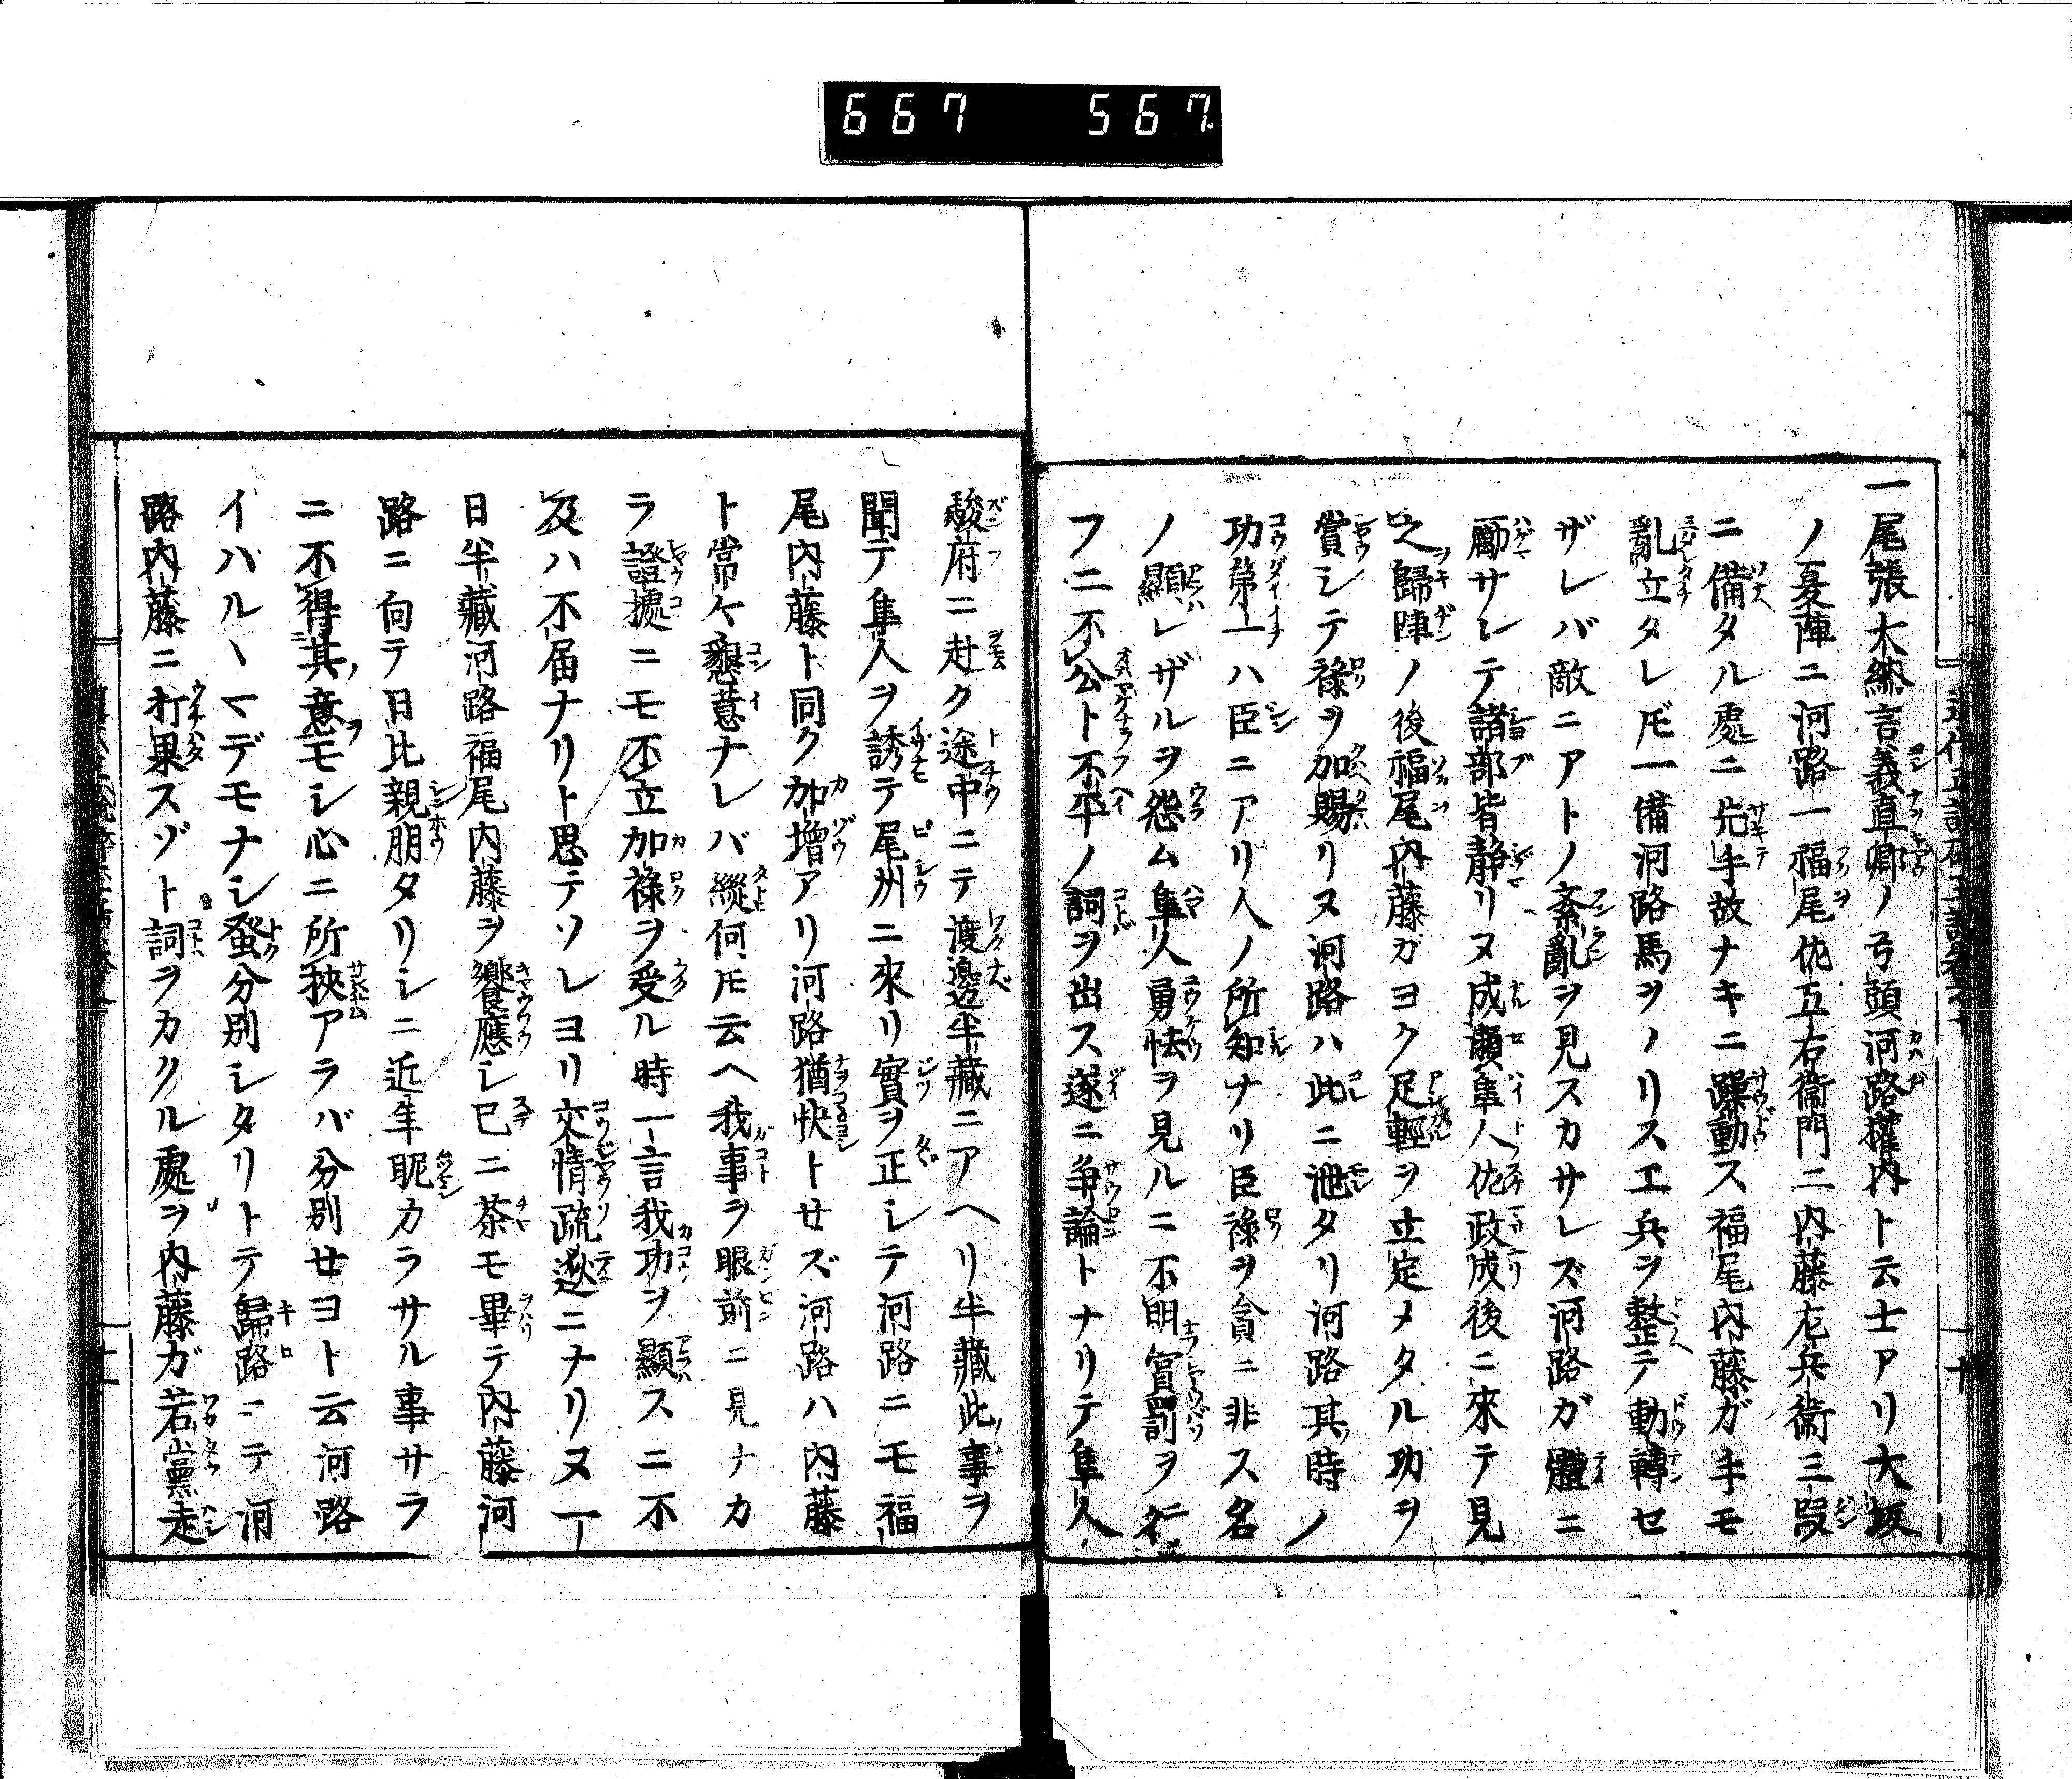 667 567
一尾張大納言義直卿ノ弓頭河路權内ト云士アリ大坂
ノ夏陣ニ河路一福尾佐五右衞門二内藤左兵衞三段
ニ備タル處ニ先手故ナキニ躁動ス福尾内藤ガ手モ
亂立タレ𪜈一備河路馬ヲノリスエ兵ヲ整テ動轉セ
ザレバ敵ニアトノ紊亂ヲ見スカサレズ河路ガ體ニ
勵サレテ諸部皆靜リヌ成瀬隼人佐政成後ニ來テ見
之歸陣ノ後福尾内藤ガヨク足輕ヲ立定メタル功ヲ
賞シテ祿ヲ加賜リヌ河路ハ此ニ泄タリ河路其時ノ
功第一ハ臣ニアリ人ノ所知ナリ臣祿ヲ貪ニ非ス名
ノ顯レザルヲ怨ム隼人勇怯ヲ見ルニ不明賞罰ヲ行
フニ不公ト不平ノ詞ヲ出ス遂ニ争論トナリテ隼人
駿府ニ赴ク途中ニテ渡邊半藏ニアヘリ半藏此事ヲ
聞テ隼人ヲ誘テ尾州ニ來リ實ヲ正シテ河路ニモ福
尾内藤ト同ク加增アリ河路猶快トセズ河路ハ内藤
ト常ケ懇意ナレバ縱何𪜈云ヘ我事ヲ眼前ニ見ナカ
ラ證據ニモ不立加祿ヲ受ル時一言我功ヲ顯スニ不
及ハ不届ナリト思テソレヨリ交情疏逖ニナリヌ一
日半藏河路福尾内藤ヲ饗應シ已ニ茶モ畢テ内藤河
路ニ向テ日比親朋タリシニ近年昵カラサル事サラ
ニ不得其意モシ心ニ所狹アラバ分別せヨト云河路
イハルヽマデモナシ蚤分別シタリトテ歸路ニテ河
路内藤ニ打果スゾト詞ヲカクル處ヲ内藤ガ若黨走